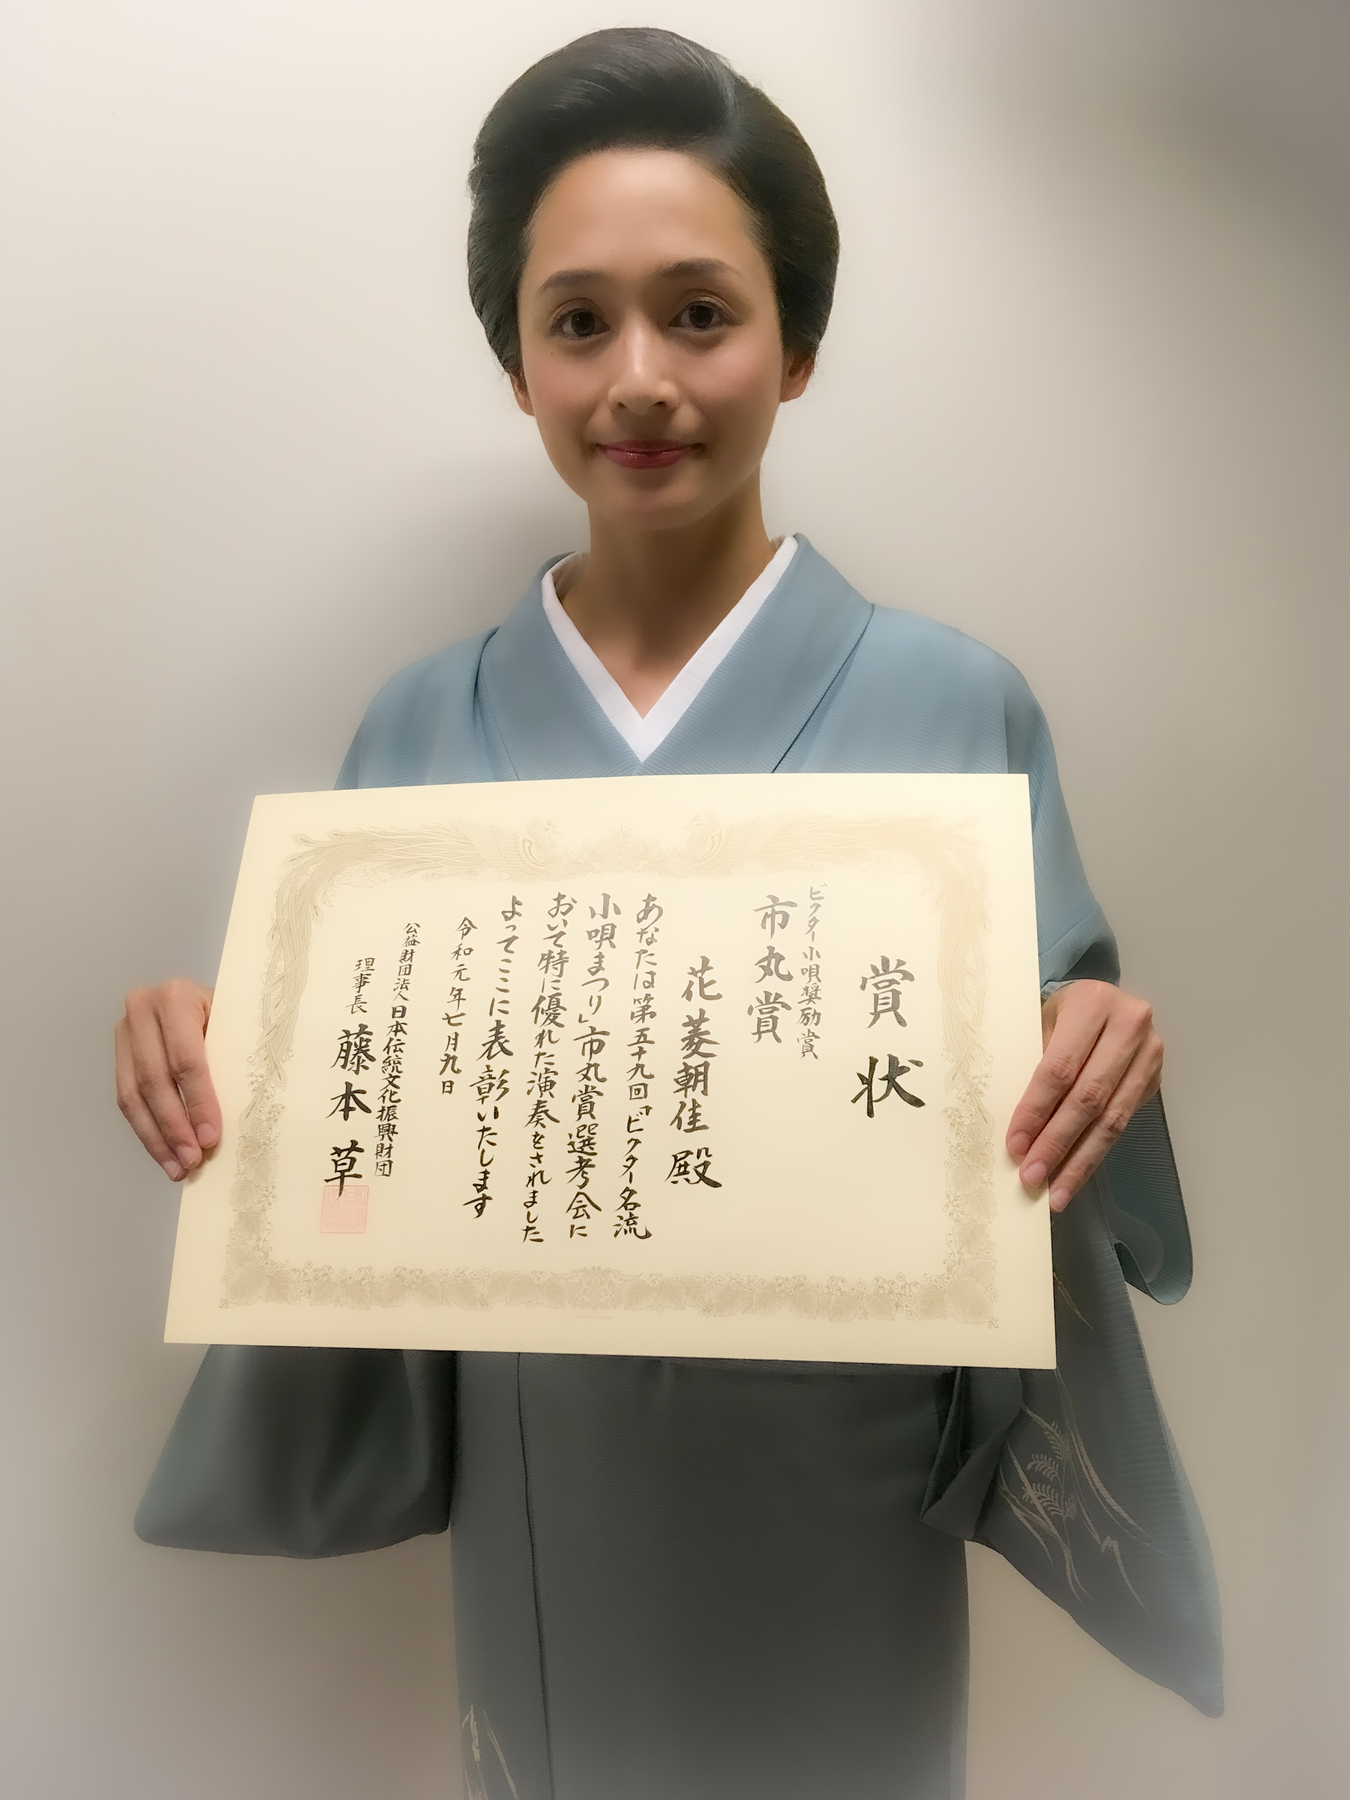 賞状
ビクター小唄奨励賞
市丸賞
花菱朝佳殿
あなたは第五十九回「ビクター名流
小唄まつり」市丸賞選考会に
おいて特に優れた演奏をされました
よってここに表彰いたします
令和元年七月九日
公益財団法人日本伝統文化振興財団
理事長 藤本草